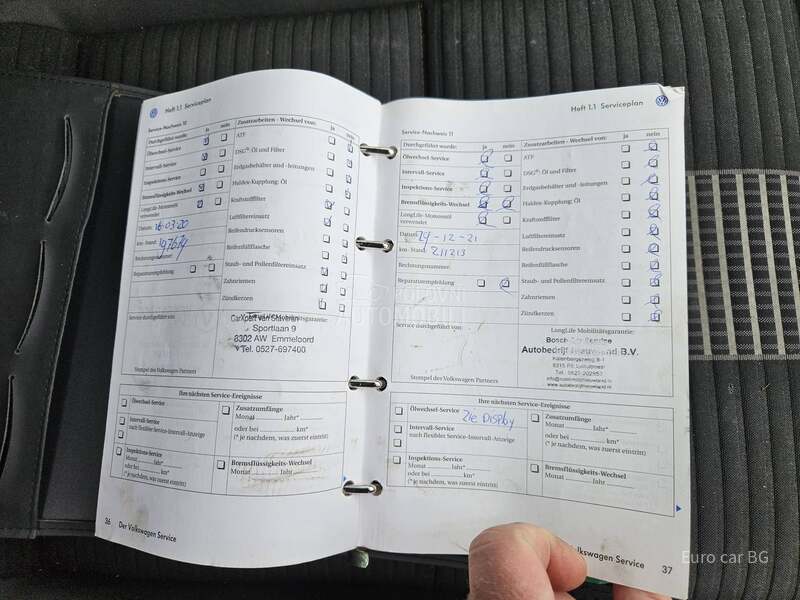 Heft 1.1 Serviceplan
Service-Nachweis 10
Durchgeführt wurde: ja nein
Ölwechsel-Service
Intervall-Service
Inspektions-Service
Bremsflüssigkeits-Wechsel
LongLife-Motorenöl
verwendet
Datum: 16-03-20
km-Stand: 197674
Rechnungsnummer:
Reparaturempfehlung
Zusatzarbeiten - Wechsel von: ja nein
ATF
DSG®: Öl und Filter
Erdgasbehälter und -leitungen
Haldex-Kupplung: Öl
Kraftstofffilter
Luftfiltereinsatz
Reifendrucksensoren
Reifenfüllflasche
Staub- und Pollenfiltereinsatz
Zahnriemen
Zündkerzen
Service durchgeführt von:
CarXpert van Staveren
Sportlaan 9
8302 AW Emmeloord
Tel. 0527-697400
Stempel des Volkswagen Partners
Ihre nächsten Service-Ereignisse
Ölwechsel-Service
Intervall-Service
nach flexibler Service-Intervall-Anzeige
Inspektions-Service
Monat Jahr*
oder bei km*
(* je nachdem, was zuerst eintritt)
Zusatzumfänge
Monat Jahr*
oder bei km*
(* je nachdem, was zuerst eintritt)
Bremsflüssigkeits-Wechsel
Monat Jahr
36 Der Volkswagen Service
Heft 1.1 Serviceplan
Service-Nachweis 11
Durchgeführt wurde: ja nein
Ölwechsel-Service
Intervall-Service
Inspektions-Service
Bremsflüssigkeits-Wechsel
LongLife-Motorenöl
verwendet
Datum: 29-12-21
km-Stand: 211213
Rechnungsnummer:
Reparaturempfehlung
Zusatzarbeiten - Wechsel von: ja nein
ATF
DSG®: Öl und Filter
Erdgasbehälter und -leitungen
Haldex-Kupplung: Öl
Kraftstofffilter
Luftfiltereinsatz
Reifendrucksensoren
Reifenfüllflasche
Staub- und Pollenfiltereinsatz
Zahnriemen
Zündkerzen
Service durchgeführt von:
LongLife Mobilitätsgarantie:
Autobedrijf B.V.
Stempel des Volkswagen Partners
Ihre nächsten Service-Ereignisse
Ölwechsel-Service Zie Display
Intervall-Service
nach flexibler Service-Intervall-Anzeige
Inspektions-Service
Monat Jahr*
oder bei km*
(* je nachdem, was zuerst eintritt)
Zusatzumfänge
Monat Jahr*
oder bei km*
(* je nachdem, was zuerst eintritt)
Bremsflüssigkeits-Wechsel
Monat Jahr
Volkswagen Service 37
Euro car BG